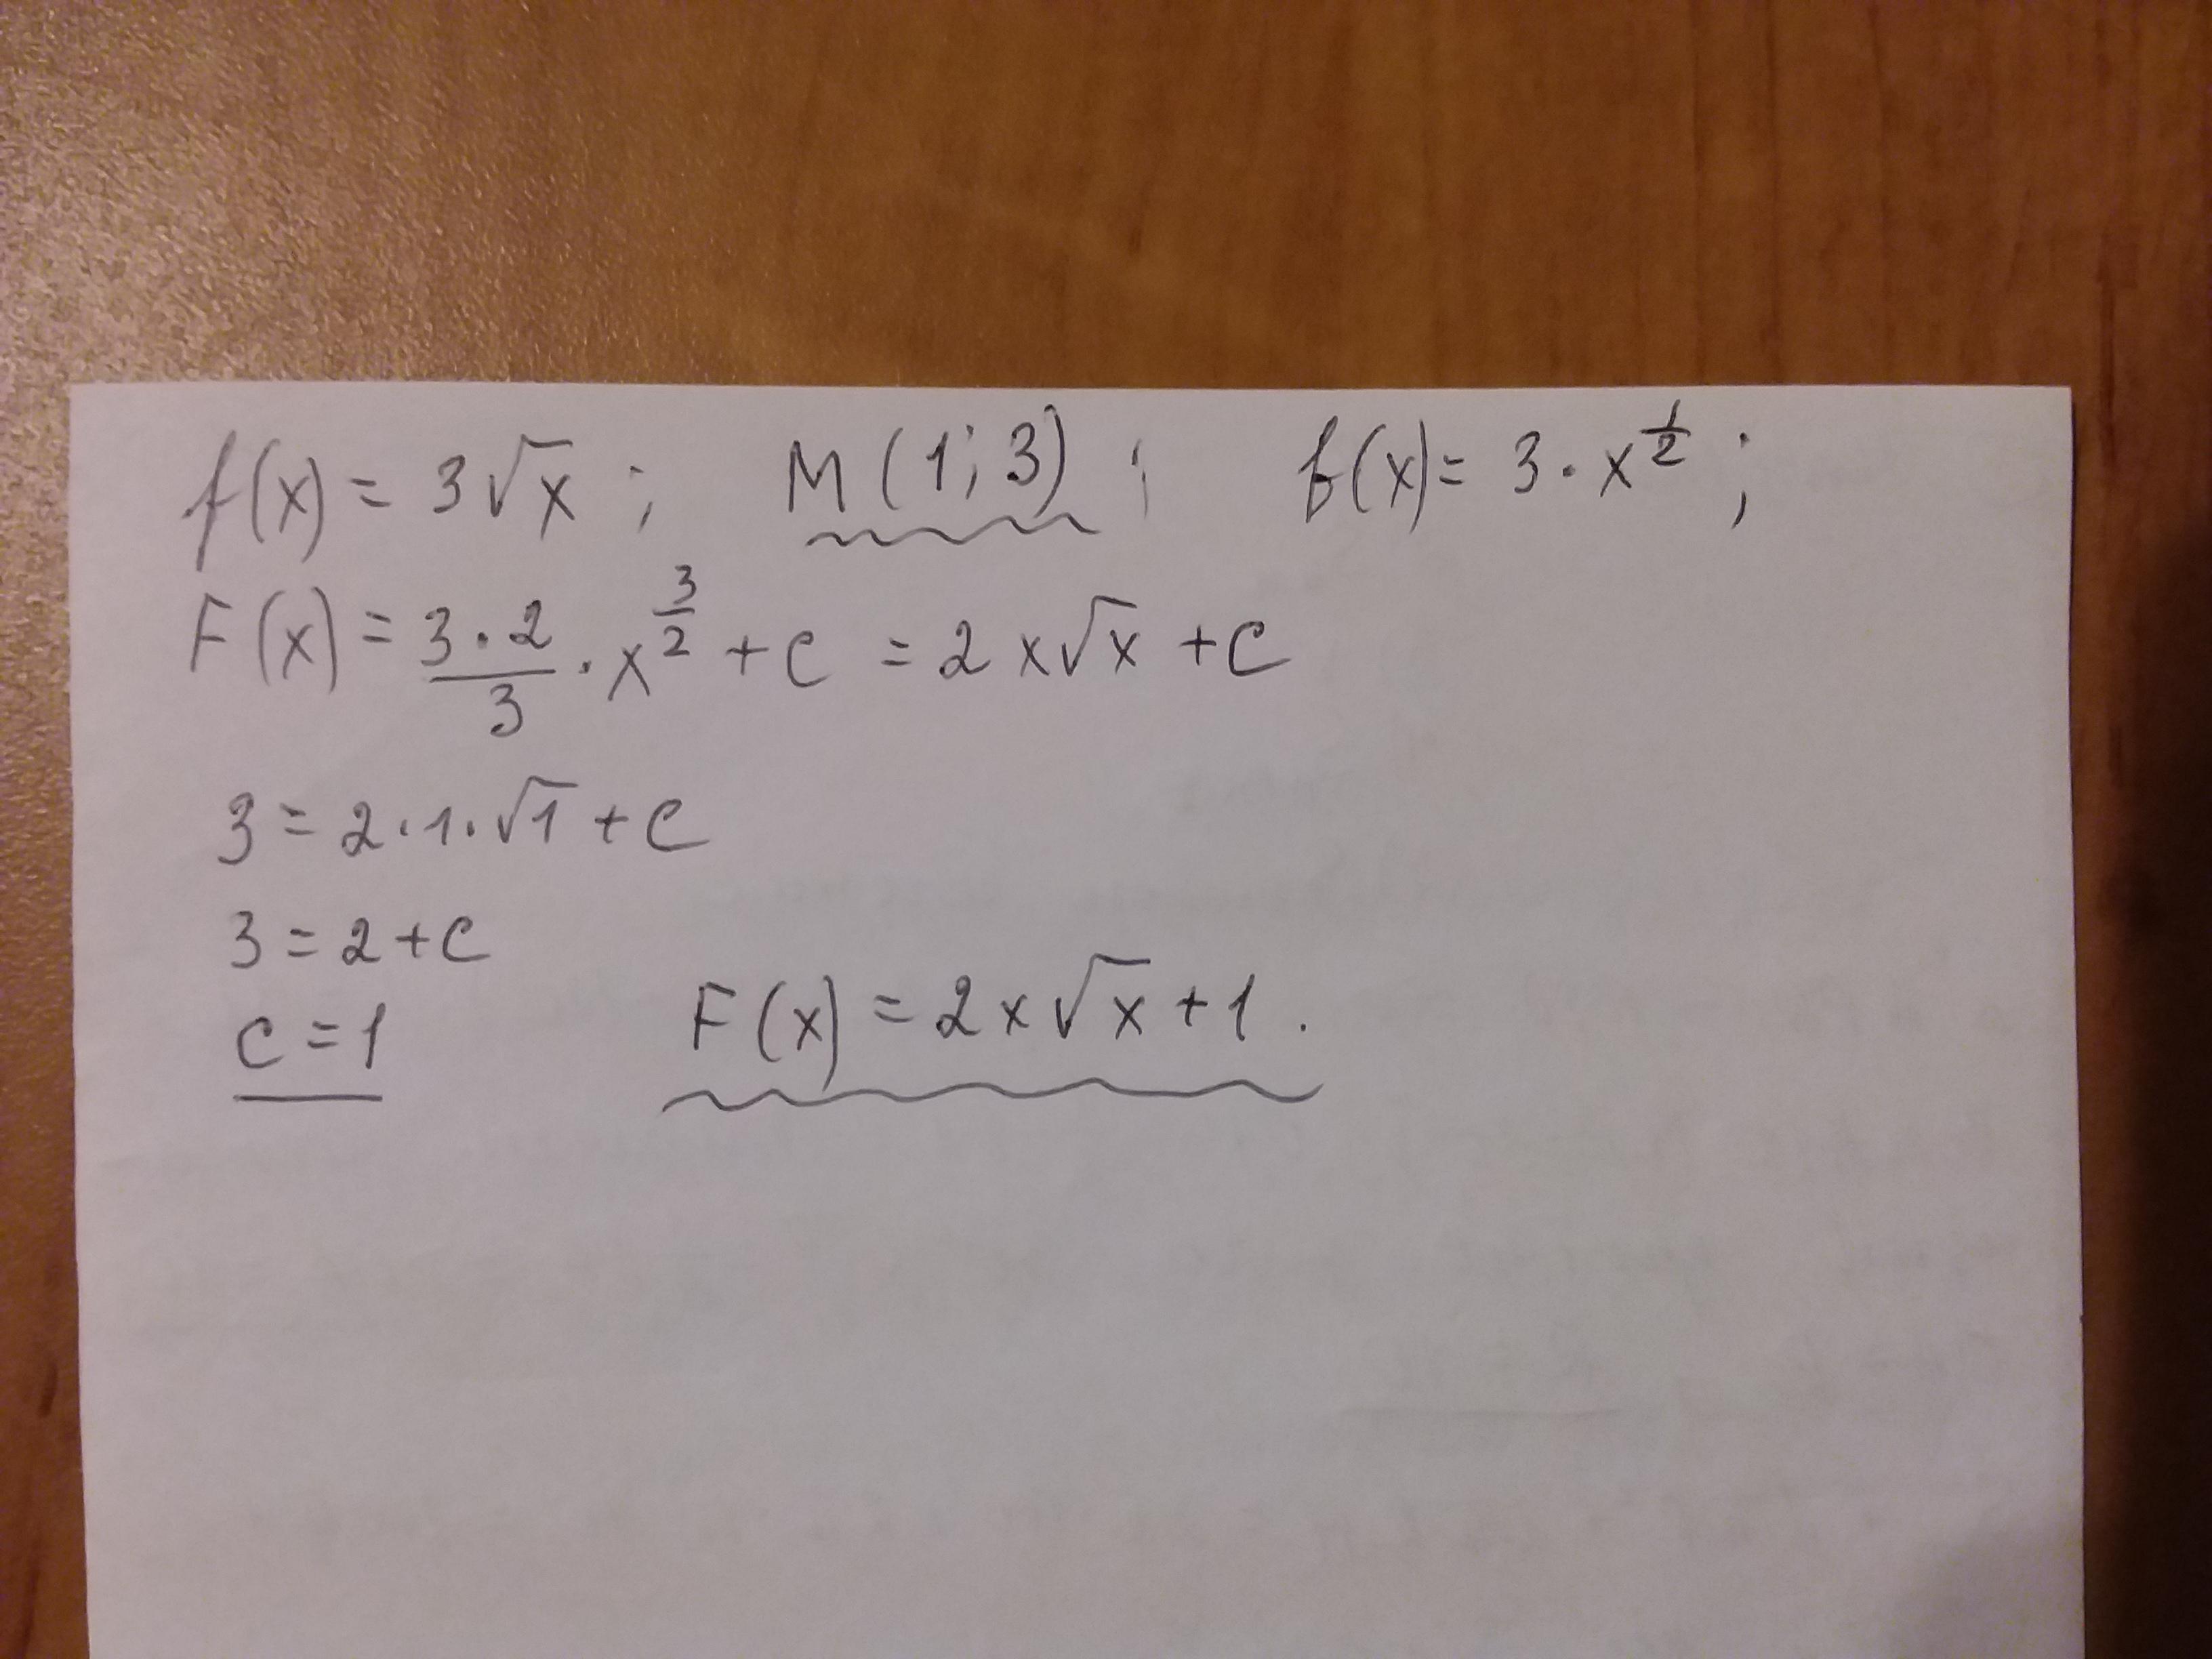 f(x) = 3√x ; M(1; 3) ; f(x) = 3 · x^(1/2) ;
F(x) = (3 · 2)/3 · x^(3/2) + c = 2x√x + c
3 = 2 · 1 · √1 + c
3 = 2 + c
c = 1 F(x) = 2x√x + 1 .